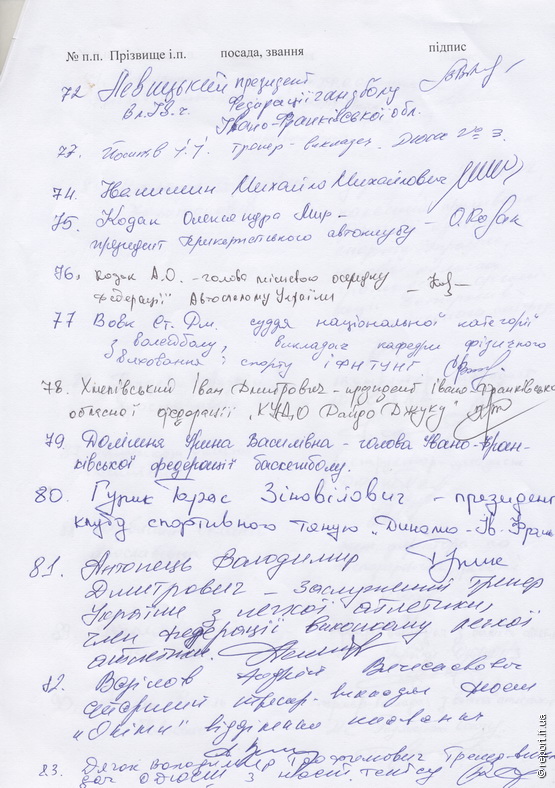 № п.п. Прізвище і.п. посада, звання підпис
72 Левицький президент
Федерації гандболу
Івано-Франківської обл.
тренер-викладач
74. Михайло Михайлович
75. Кодак Олександра Мир-
президент Прикарпатського автоклубу - О.Кодак
76. Козак А.О. - голова місцевого осередку
Федерації Автоспорту України
77 Вовк Ст. Дм. суддя національної категорії
з волейболу, викладач кафедри фізичного
виховання і спорту ІФНТУНГ
78. Іван Дмитрович - президент Івано-Франківської
обласної федерації "КУДО Дайдо Джуку"
79. Ірина Василівна - голова Івано-Фран-
ківської федерації баскетболу.
80. Гурик Тарас Зіновійович - президент
клубу спортивного танцю "Динамо-Ів-Франк
81. Антонець Володимир Гурик
Дмитрович - Заслужений тренер
України з легкої атлетики,
член федерації виконкому легкої
атлетики.
82. Андрій Вячеславович
старший тренер-викладач
відділення плавання
83. Дячок Володимир Трофимович Тренер-викла
дач СДЮСШ з наст. тенісу
© report.if.ua